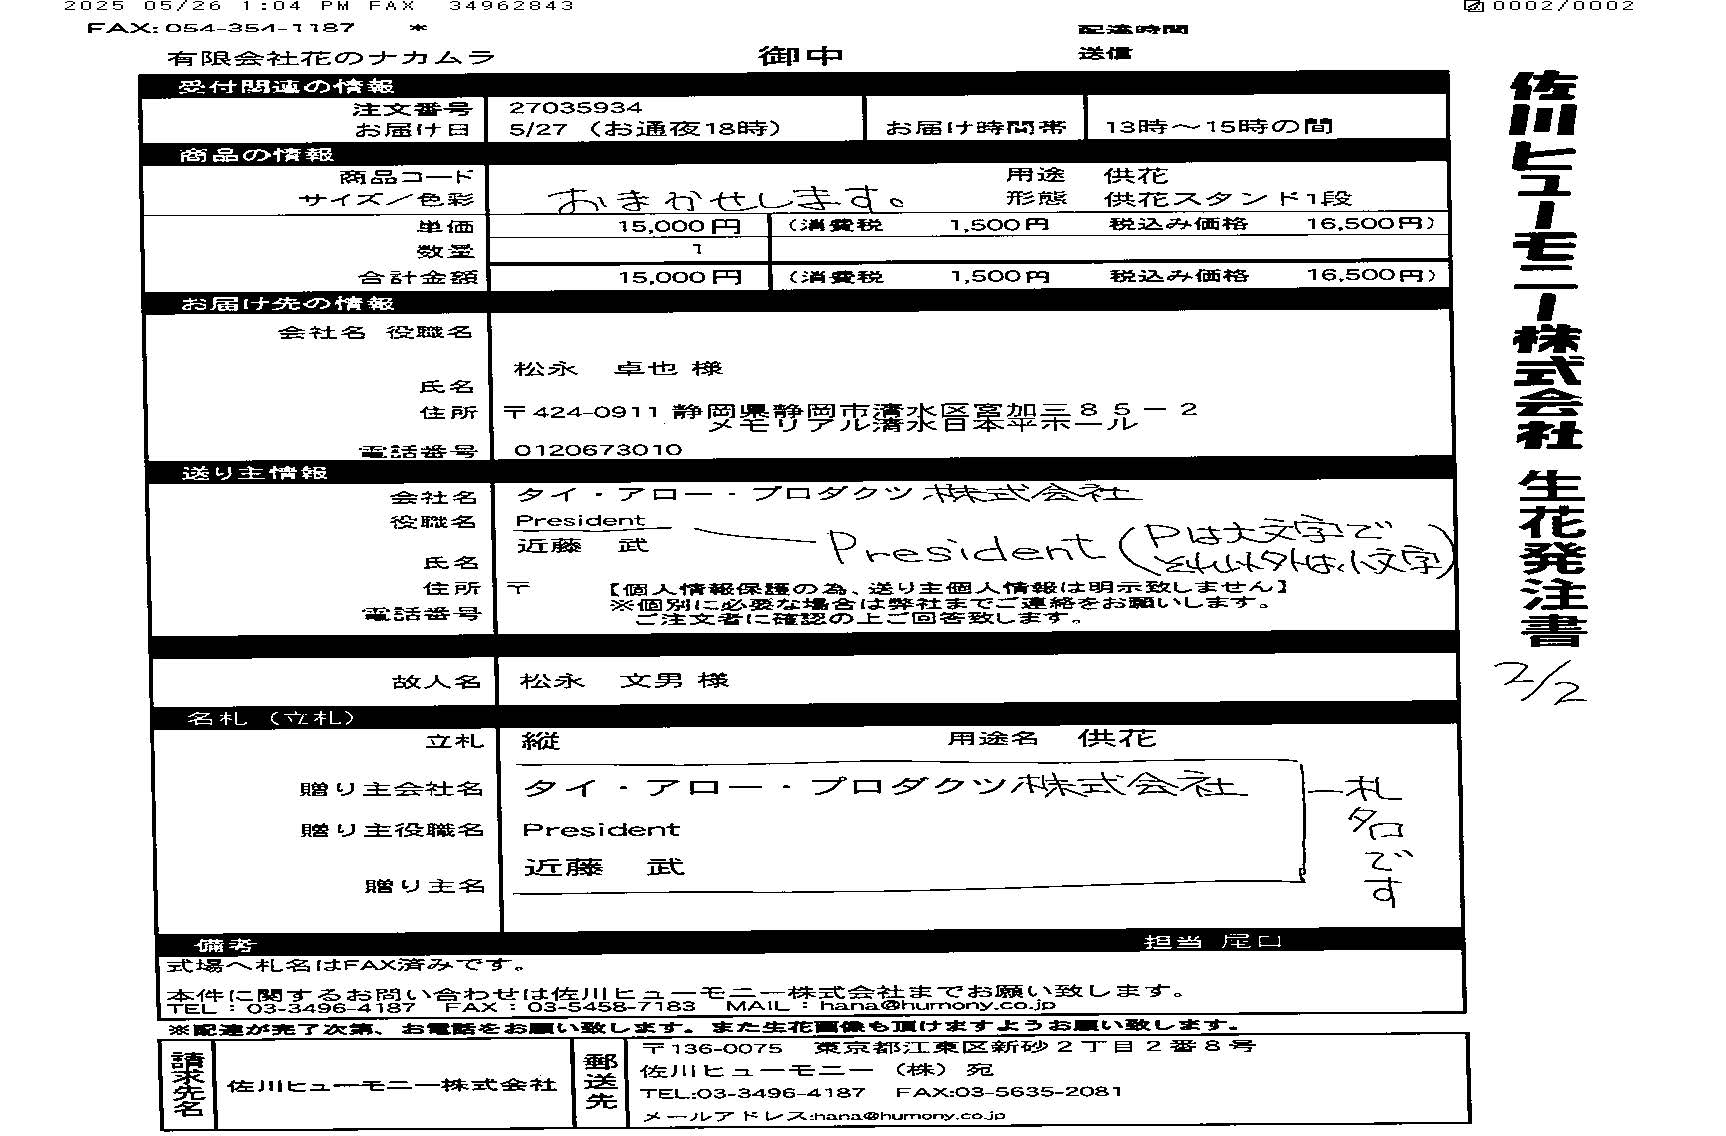 2025 05/26 1:04 PM FAX 34962843 0002/0002
FAX:054-354-1187 *
配達時間
有限会社花のナカムラ 御中 送信
受付関連の情報
注文番号 27035934
お届け日 5/27 (お通夜18時) お届け時間帯 13時～15時の間
商品の情報
商品コード 用途 供花
サイズ/色彩 おまかせします。 形態 供花スタンド1段
単価 15,000円 (消費税 1,500円 税込み価格 16,500円)
数量 1
合計金額 15,000円 (消費税 1,500円 税込み価格 16,500円)
お届け先の情報
会社名 役職名
松永 卓也 様
氏名
住所 〒424-0911 静岡県静岡市清水区宮加三85-2
メモリアル清水日本平ホール
電話番号 0120673010
送り主情報
会社名 タイ・アロー・プロダクツ株式会社
役職名 President
近藤 武 President (Pは大文字で
それ以外は小文字)
氏名
住所 〒 【個人情報保護の為、送り主個人情報は明示致しません】
※個別に必要な場合は弊社までご連絡をお願いします。
電話番号 ご注文者に確認の上ご回答致します。
故人名 松永 文男 様
名札 (立札)
立札 縦 用途名 供花
贈り主会社名 タイ・アロー・プロダクツ株式会社
贈り主役職名 President
近藤 武
贈り主名
札名です
備考 担当 尾口
式場へ札名はFAX済みです。
本件に関するお問い合わせは佐川ヒューモニー株式会社までお願い致します。
TEL : 03-3496-4187 FAX : 03-5458-7183 MAIL : hana@humony.co.jp
※配達が完了次第、お電話をお願い致します。また生花画像も頂けますようお願い致します。
請求先名 佐川ヒューモニー株式会社 郵送先
〒136-0075 東京都江東区新砂2丁目2番8号
佐川ヒューモニー (株) 宛
TEL:03-3496-4187 FAX:03-5635-2081
メールアドレス:hana@humony.co.jp
佐川ヒューモニー株式会社 生花発注書
2/2